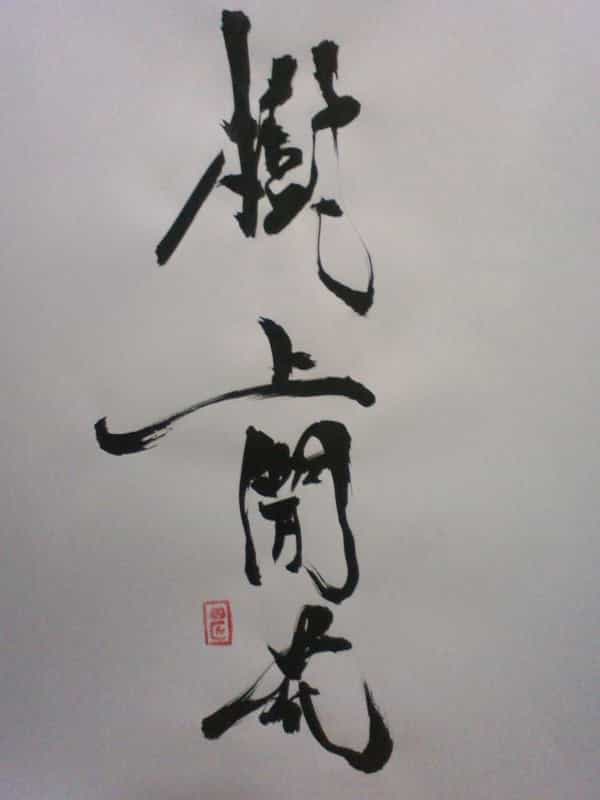 樹上開花